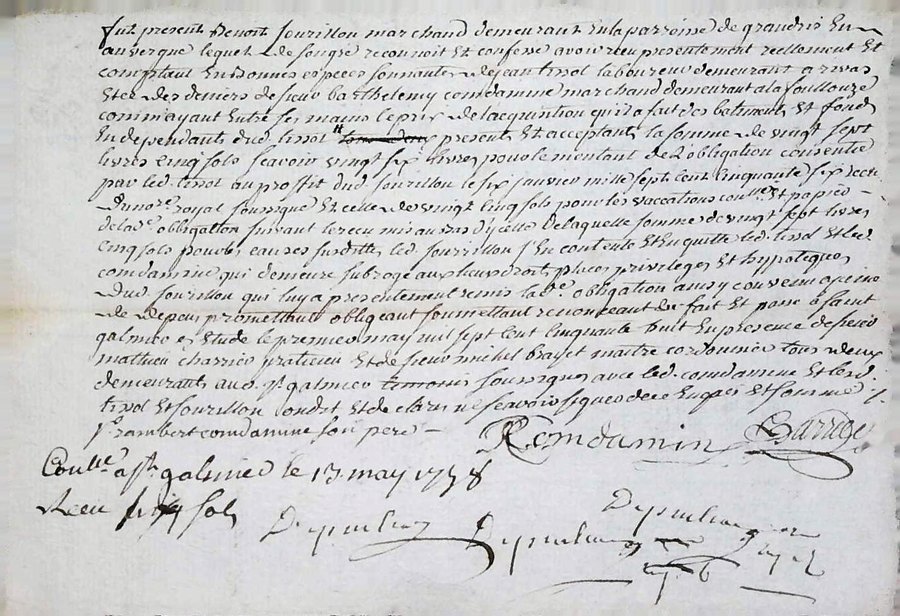 fut present Benoit Sourillon marchand demeurant en la parroisse de grandris en
auvergne lequel de son gré reconnoit et confesse avoir reçu presentement reellement et
comptant en bonnes especes sonnantes de jean tissot laboureur demeurant a rivas
et ce des deniers de sieur barthelemy comdamine marchand demeurant a la fouillouze
comme ayant entre ses mains le prix de l'acquisition qu'il a fait des batiments et fonds
en dependants dud. tissot presents et acceptants la somme de vingt sept
livres cinq sols scavoir vingt six livres pour le montant de l'obligation consentie
par led. tissot au proffit dud. sourillon le six janvier mille sept cent cinquante six recue
du no.re royal soussigné et celle de vingt cinq sols pour les vaccations con.lle et papier
de lad.e obligation suivant le recu mis au bas d'icelle de laquelle somme de vingt sept livres
cinq sols pour les causes susdittes led. sourillon s'en contente et en quitte led. tissot et led.
comdamine qui demeure subrogé aux lieux droits places privileges et hypoteques
dud. sourillon qui luy a presentement remis lad.e obligation ainsy convenu a peine
de depens promettant obligeant soumettant renonceant &c fait et passé a saint
galmier en etude le premier may mil sept cent cinquante huit en presence de sieur
mathieu charrier praticien et de sieur michel brasset maitre cordonnier tous deux
demeurants aud. s.t galmier temoins soussignés avec led. comdamine et lesd.
tissot et sourillon ont dit et declaré ne scavoir signer de ce enquis et sommé
s.t rambert comdamine son pere
R Comdamin Barrge
Con.lle a s.t galmier le 13 may 1758
Receu sols